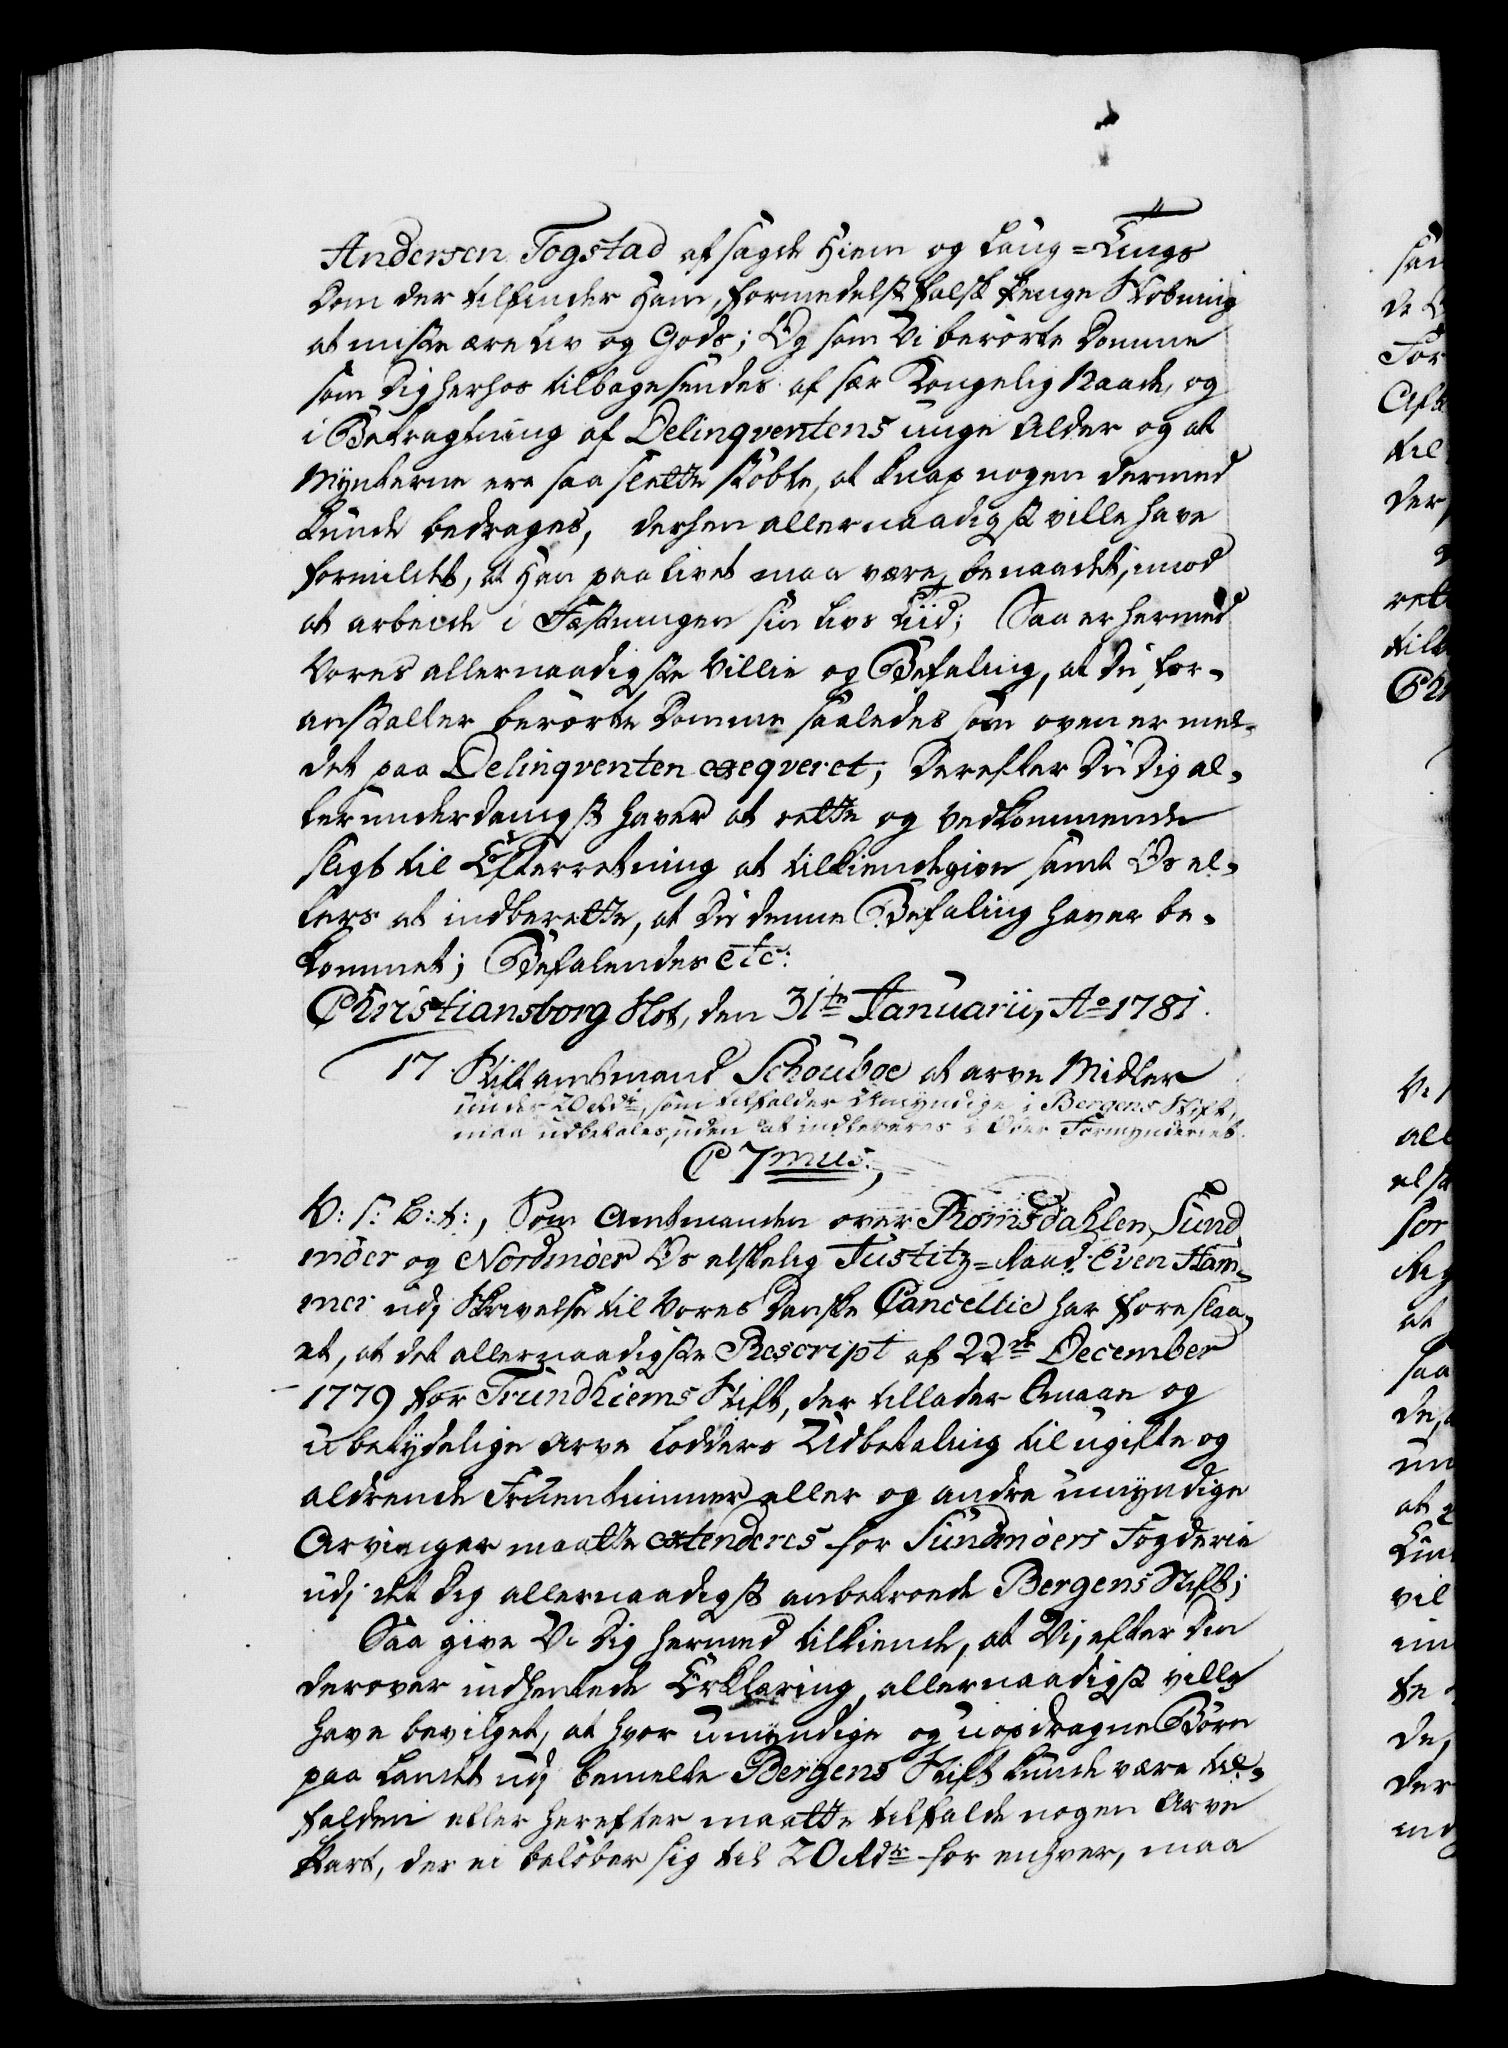 Andersen Togstad afsagde Hiem og Laug=Tings
Dom der tilfinder Ham, formedelst falsk Penge Støbning
at miste ære Liv og Gods; Og som Vi berørte Domme
som Dig herhos tilbagesendes af sær Kongelig Naade, og
i Betragtning af Delinqventens unge Alder og at
Mynterne ere saa slette støbte, at knap nogen dermed
kunde bedrages, derhen allernaadigst ville have
formildet, at Han paa Livet maa være benaadet, imod
at arbeide i Fæstningen sin Livs Tiid; Saa er hermed
Vores allernaadigste Villie og Befaling, at Du for-
anstalter berørte Domme saaledes som oven er mel-
det paa Delinqventen exeqveret; Derefter Du Dig al-
lerunderdanigst haver at rette og Vedkommende
sligt til Efterretning at tilkiendegive samt Os el-
lers at indberette, at Du denne Befaling haver be-
kommet; Befalendes etc:
Christiansborg Slot, den 31te Januarii, Ao 1781.
17 Stiftamtmand Schouboe at arve Midler
under 20 Rdr, som tilfalder Umyndige i Bergens Stift,
maa udbetales, uden at indleveres i Over Formynderiet.
C 7mus.,
V: S: B: t:, Som Amtmanden over Romsdahlen, Sund
möer og Nordmöer Os elskelig Justitz=Raad Even Ham-
mer udj Skrivelse til Vores Danske Cancellie har foreslaa-
et, at det allernaadigste Rescript af 22de December
1779 for Trundhiems Stift, der tillader Smaae og
ubetydelige Arve Lodders Udbetaling til ugifte og
aldrende Fruentimmer eller og andre umyndige
Arvinger maatte extenderes for Sundmöers Fogderie
udj det Dig allernaadigst anbetroede Bergens Stift;
Saa give Vi Dig hermed tilkiende, at Vi, efter Din
derover indhentede Erklæring, allernaadigst ville
have bevilget, at hvor umyndige og uopdragne Börn
paa Landet udj bemelte Bergens Stift kunde være til-
falden eller herefter maatte tilfalde nogen Arve
Part, der ei beløber sig til 20 Rdr for enhver, maa